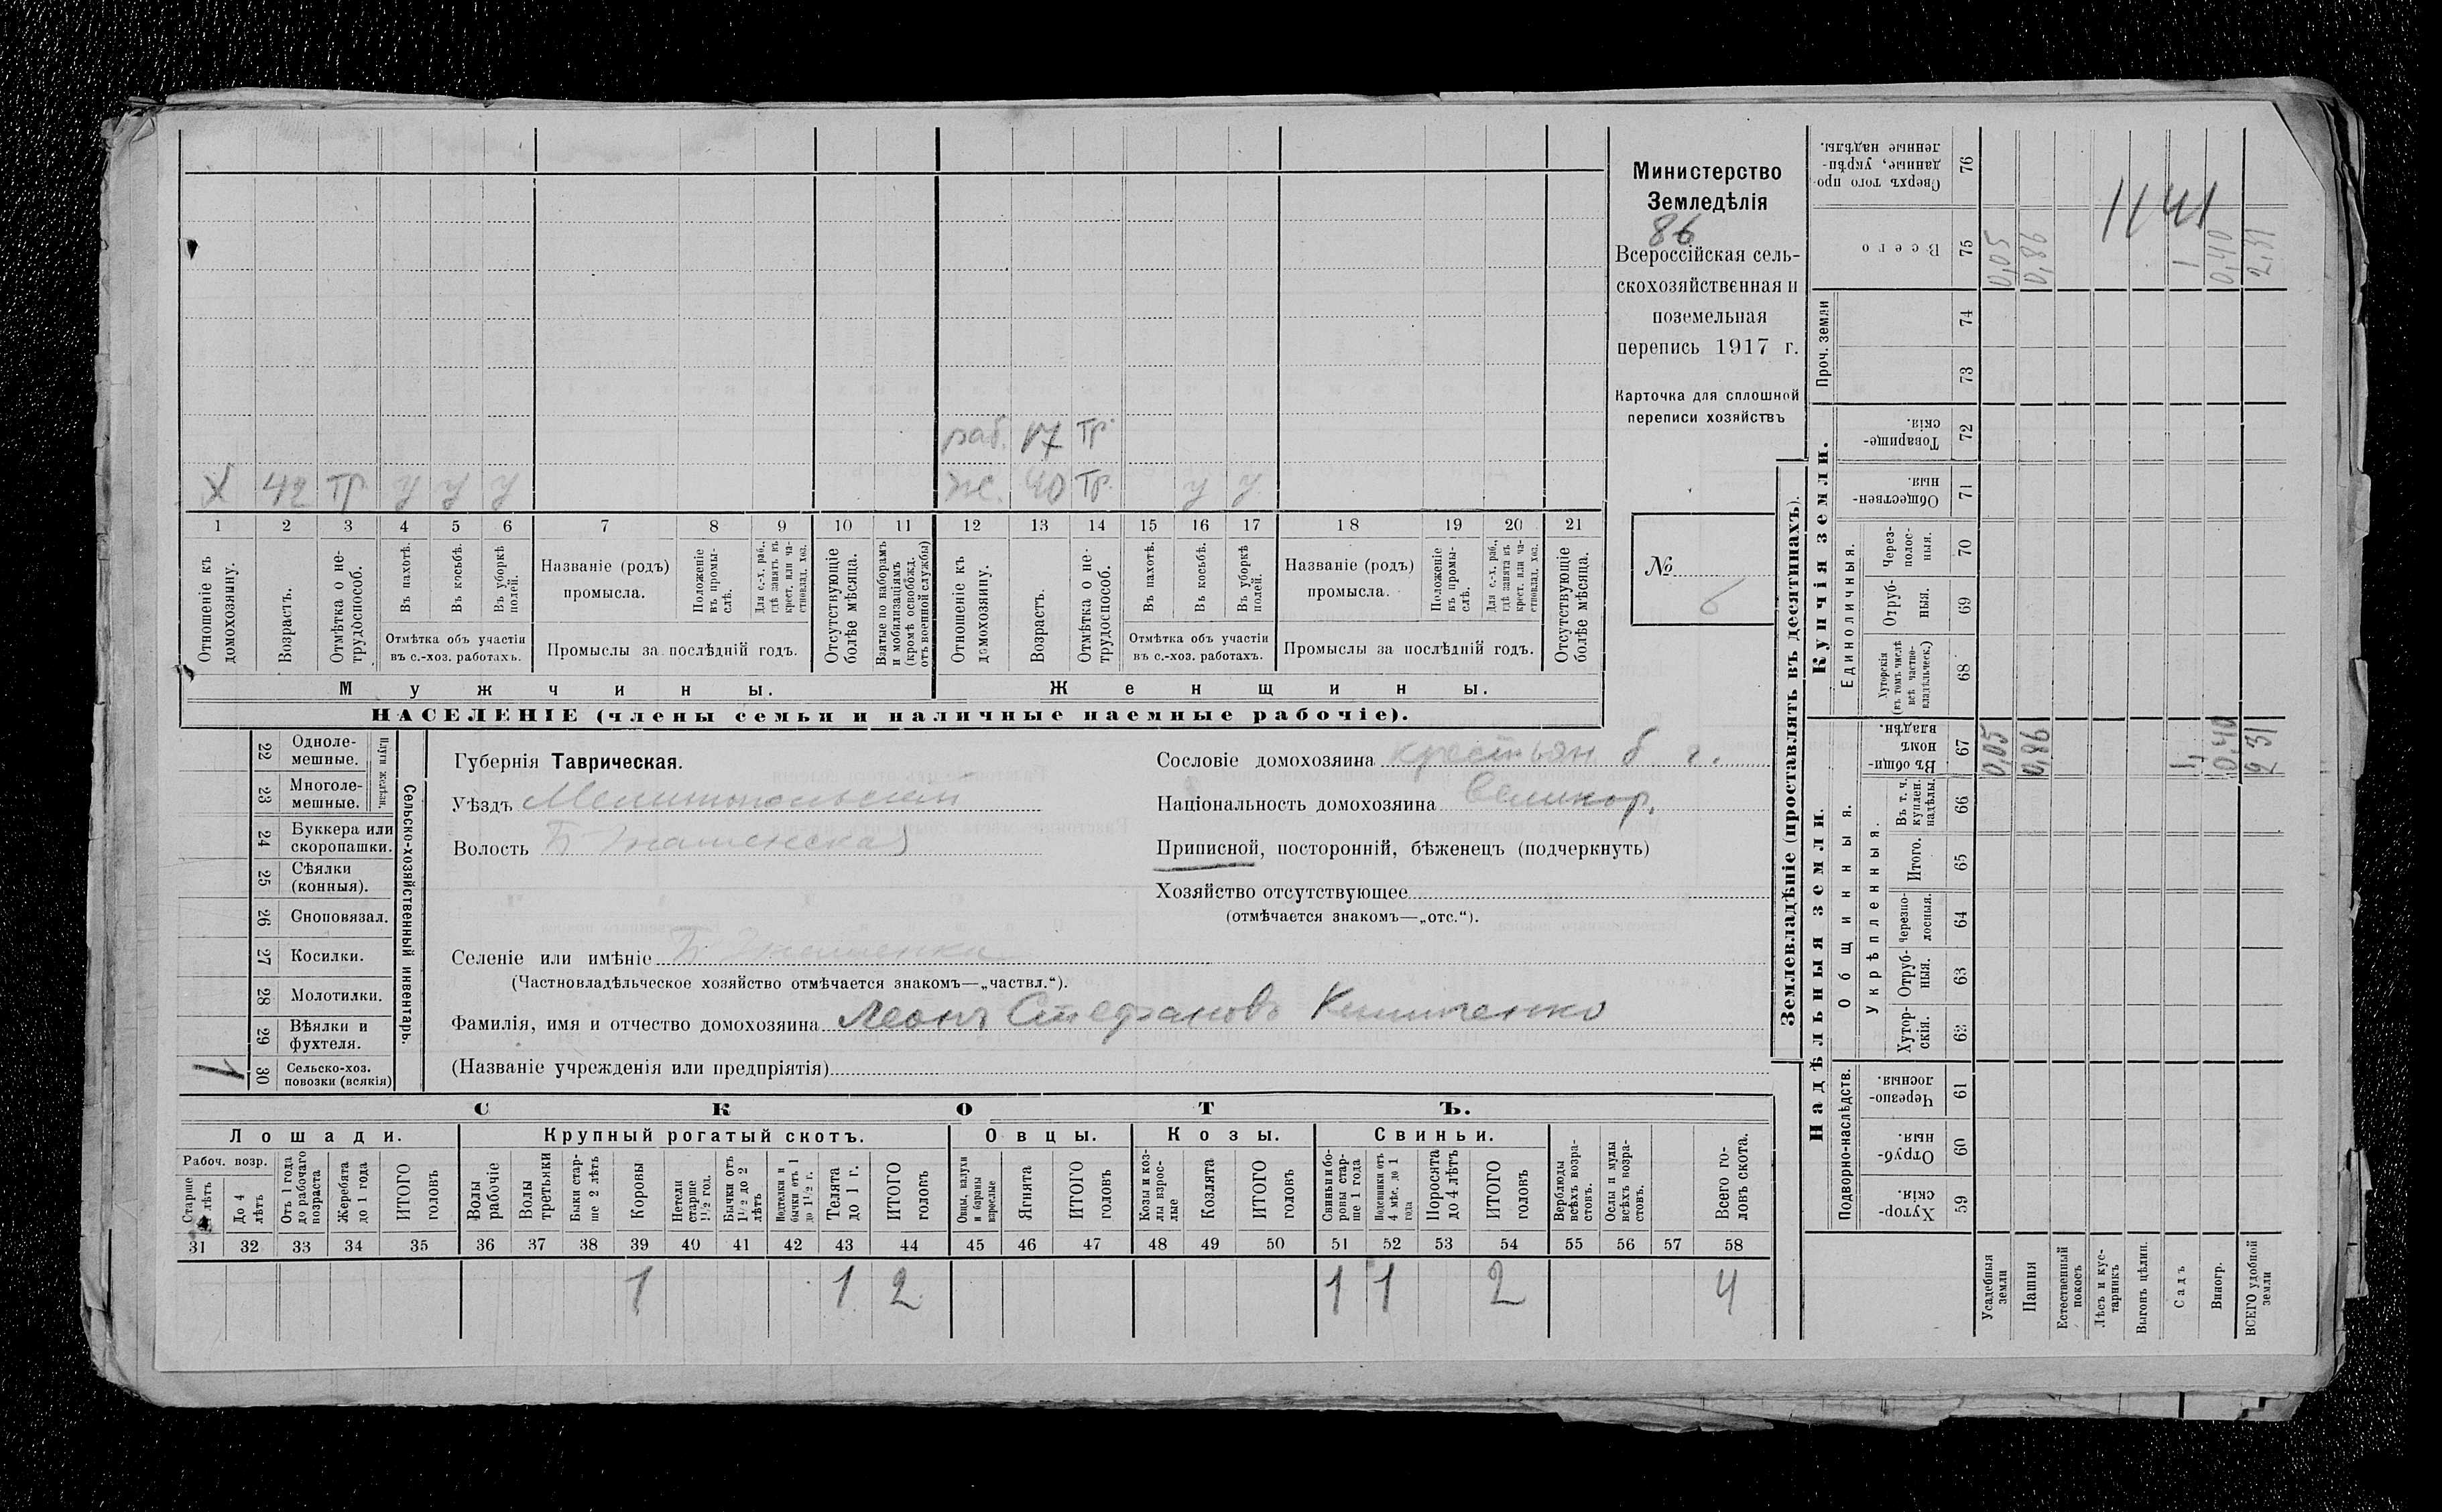 Министерство
Земледѣлія
86
Всероссійская сель-
скохозяйственная и
поземельная
перепись 1917 г.
Карточка для сплошной
переписи хозяйствъ
№
6
раб. 17 тр.
х 42 тр у у у ж. 40 тр. у у
1 2 3 4 5 6 7 8 9 10 11 12 13 14 15 16 17 18 19 20 21
Отношеніе къ домохозяину.
Возрастъ.
Отмѣтка о не-трудоспособ.
Въ пахотѣ.
Въ косьбѣ.
Въ уборкѣ полей.
Отмѣтка объ участіи въ с.-хоз. работахъ.
Названіе (родъ) промысла.
Положеніе въ промы-слѣ.
Для с.-х. раб., гдѣ занятъ въ крест. или ча-стновлад. хоз.
Промыслы за послѣдній годъ.
Отсутствующіе болѣе мѣсяца.
Взятые по наборамъ и мобилизаціямъ (кромѣ освобожд. отъ военной службы)
Отношеніе къ домохозяину.
Возрастъ.
Отмѣтка о не-трудоспособ.
Въ пахотѣ.
Въ косьбѣ.
Въ уборкѣ полей.
Отмѣтка объ участіи въ с.-хоз. работахъ.
Названіе (родъ) промысла.
Положеніе въ промы-слѣ.
Для с.-х. раб., гдѣ занята въ крест. или ча-стновлад. хоз.
Промыслы за послѣдній годъ.
Отсутствующіе болѣе мѣсяца.
Мужчины. Женщины.
НАСЕЛЕНІЕ (члены семьи и наличные наемные рабочіе).
22 Одноле-мешные.
23 Многоле-мешные.
Плуги желѣзн.
24 Буккера или скоропашки.
25 Сѣялки (конныя).
26 Сноповязал.
27 Косилки.
28 Молотилки.
29 Вѣялки и фухтеля.
1 30 Сельско-хоз. повозки (всякія)
Сельско-хозяйственный инвентарь.
Губернія Таврическая.
Уѣздъ Мелитопольскій
Волость Б-Знаменская
Сословіе домохозяина крестьян б г.
Національность домохозяина Великор.
Приписной, посторонній, бѣженецъ (подчеркнуть)
Хозяйство отсутствующее
(отмѣчается знакомъ—„отс.“).
Селеніе или имѣніе Б. Знаменка
(Частновладѣльческое хозяйство отмѣчается знакомъ—„частвл.“).
Фамилія, имя и отчество домохозяина Леонъ Стефановъ
(Названіе учрежденія или предпріятія)
СКОТЪ.
Лошади. Крупный рогатый скотъ. Овцы. Козы. Свиньи.
Рабоч. возр.
Старше 4 лѣтъ
До 4 лѣтъ
Отъ 1 года до рабочаго возраста
Жеребята до 1 года
ИТОГО головъ
Волы рабочіе
Волы третьяки
Быки стар-ше 2 лѣтъ
Коровы
Нетели старше 1½ год.
Бычки отъ 1½ до 2 лѣтъ
Подтелки и бычки отъ 1 до 1½ г.
Телята до 1 г.
ИТОГО головъ
Овцы, валухи и бараны взрослые
Ягнята
ИТОГО головъ
Козы и коз-лы взрос-лые
Козлята
ИТОГО головъ
Свиньи и бо-ровы стар-ше 1 года
Подсвинки отъ 4 мѣс. до 1 года
Поросята до 4 лѣтъ
ИТОГО головъ
Верблюды всѣхъ возра-стовъ.
Ослы и мулы всѣхъ возра-стовъ.
Всего го-ловъ скота.
31 32 33 34 35 36 37 38 39 40 41 42 43 44 45 46 47 48 49 50 51 52 53 54 55 56 57 58
1 1 2 1 1 2 4
Землевладѣніе (проставлять въ десятинахъ).
Сверхъ того про-данные, укрѣп-ленные надѣлы. 76
Всего 75 0,05 0,86 1 0,40 2,31
1141
Проч. земли 74 73
Купчія земли.
Товарище-скія. 72
Обществен-ныя. 71
Единоличныя.
Через-полос-ныя. 70
Отруб-ныя. 69
Хуторскія (въ томъ числѣ всѣ частно-владѣльческ.) 68
Надѣльныя земли.
Общинныя.
Въ общин-номъ владѣн. 67 0,05 0,86 1, 0,40 2 31
Укрѣпленныя.
Въ т. ч. куплен. надѣлы. 66
Итого. 65
Черезпо-лосныя. 64
Отруб-ныя. 63
Хутор-скія. 62
Подворно-наслѣдств.
Черезпо-лосныя. 61
Отруб-ныя. 60
Хутор-скія. 59
Усадебныя земли
Пашня
Естественный покосъ
Лѣсъ и кус-тарникъ
Выгонъ цѣлин.
Садъ
Виногр.
ВСЕГО удобной земли